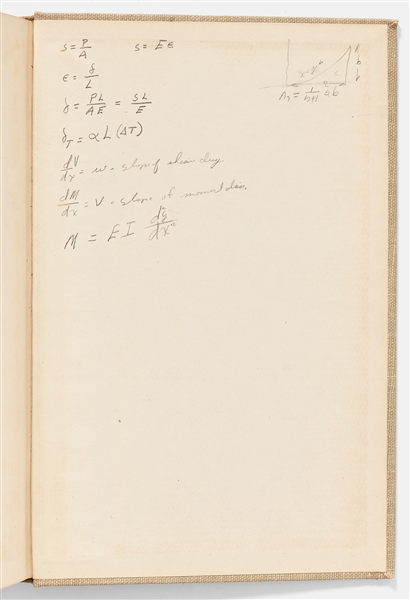 S = P/A    S = E ϵ
ϵ = δ/L
δ = PL/AE = SL/E
δ_T = α L (ΔT)
dV/dx = w = slope of shear diag.
dM/dx = V = slope of moment diag.
M = E I d²y/dx²
A_n = 1/(n+1) ab